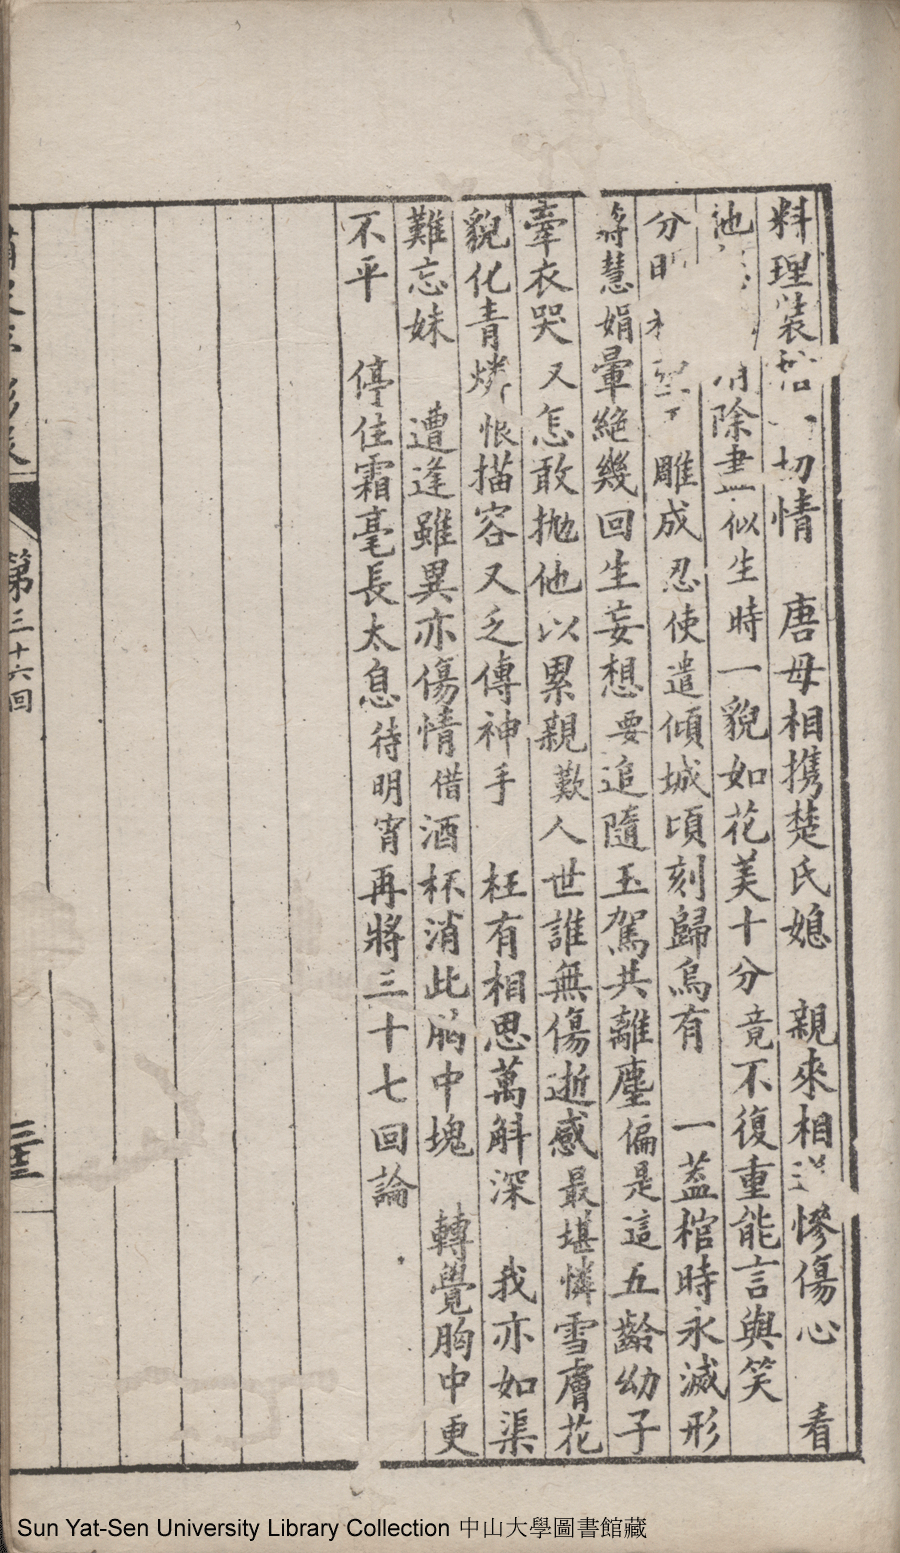 料理裝 切情 唐母相携楚氏媳 親來相 慘傷心 看
他 除盡似生時一貌如花美十分竟不復重能言與笑
分 雕成忍使遣傾城頃刻歸烏有 一蓋棺時永滅形
將慧娟暈絕幾回生妄想要追隨玉駕共離塵偏是這五齡幼子
牽衣哭又怎敢拋他以累親歎人世誰無傷逝感最堪憐雪膚花
貌化青燐恨描容又乏傳神手 枉有相思萬斛深 我亦如渠
難忘妹 遭逢雖異亦傷情借酒杯消此胸中塊 轉覺胸中更
不平 停住霜毫長太息待明宵再將三十七回論
第三十六回
Sun Yat-Sen University Library Collection 中山大學圖書館藏